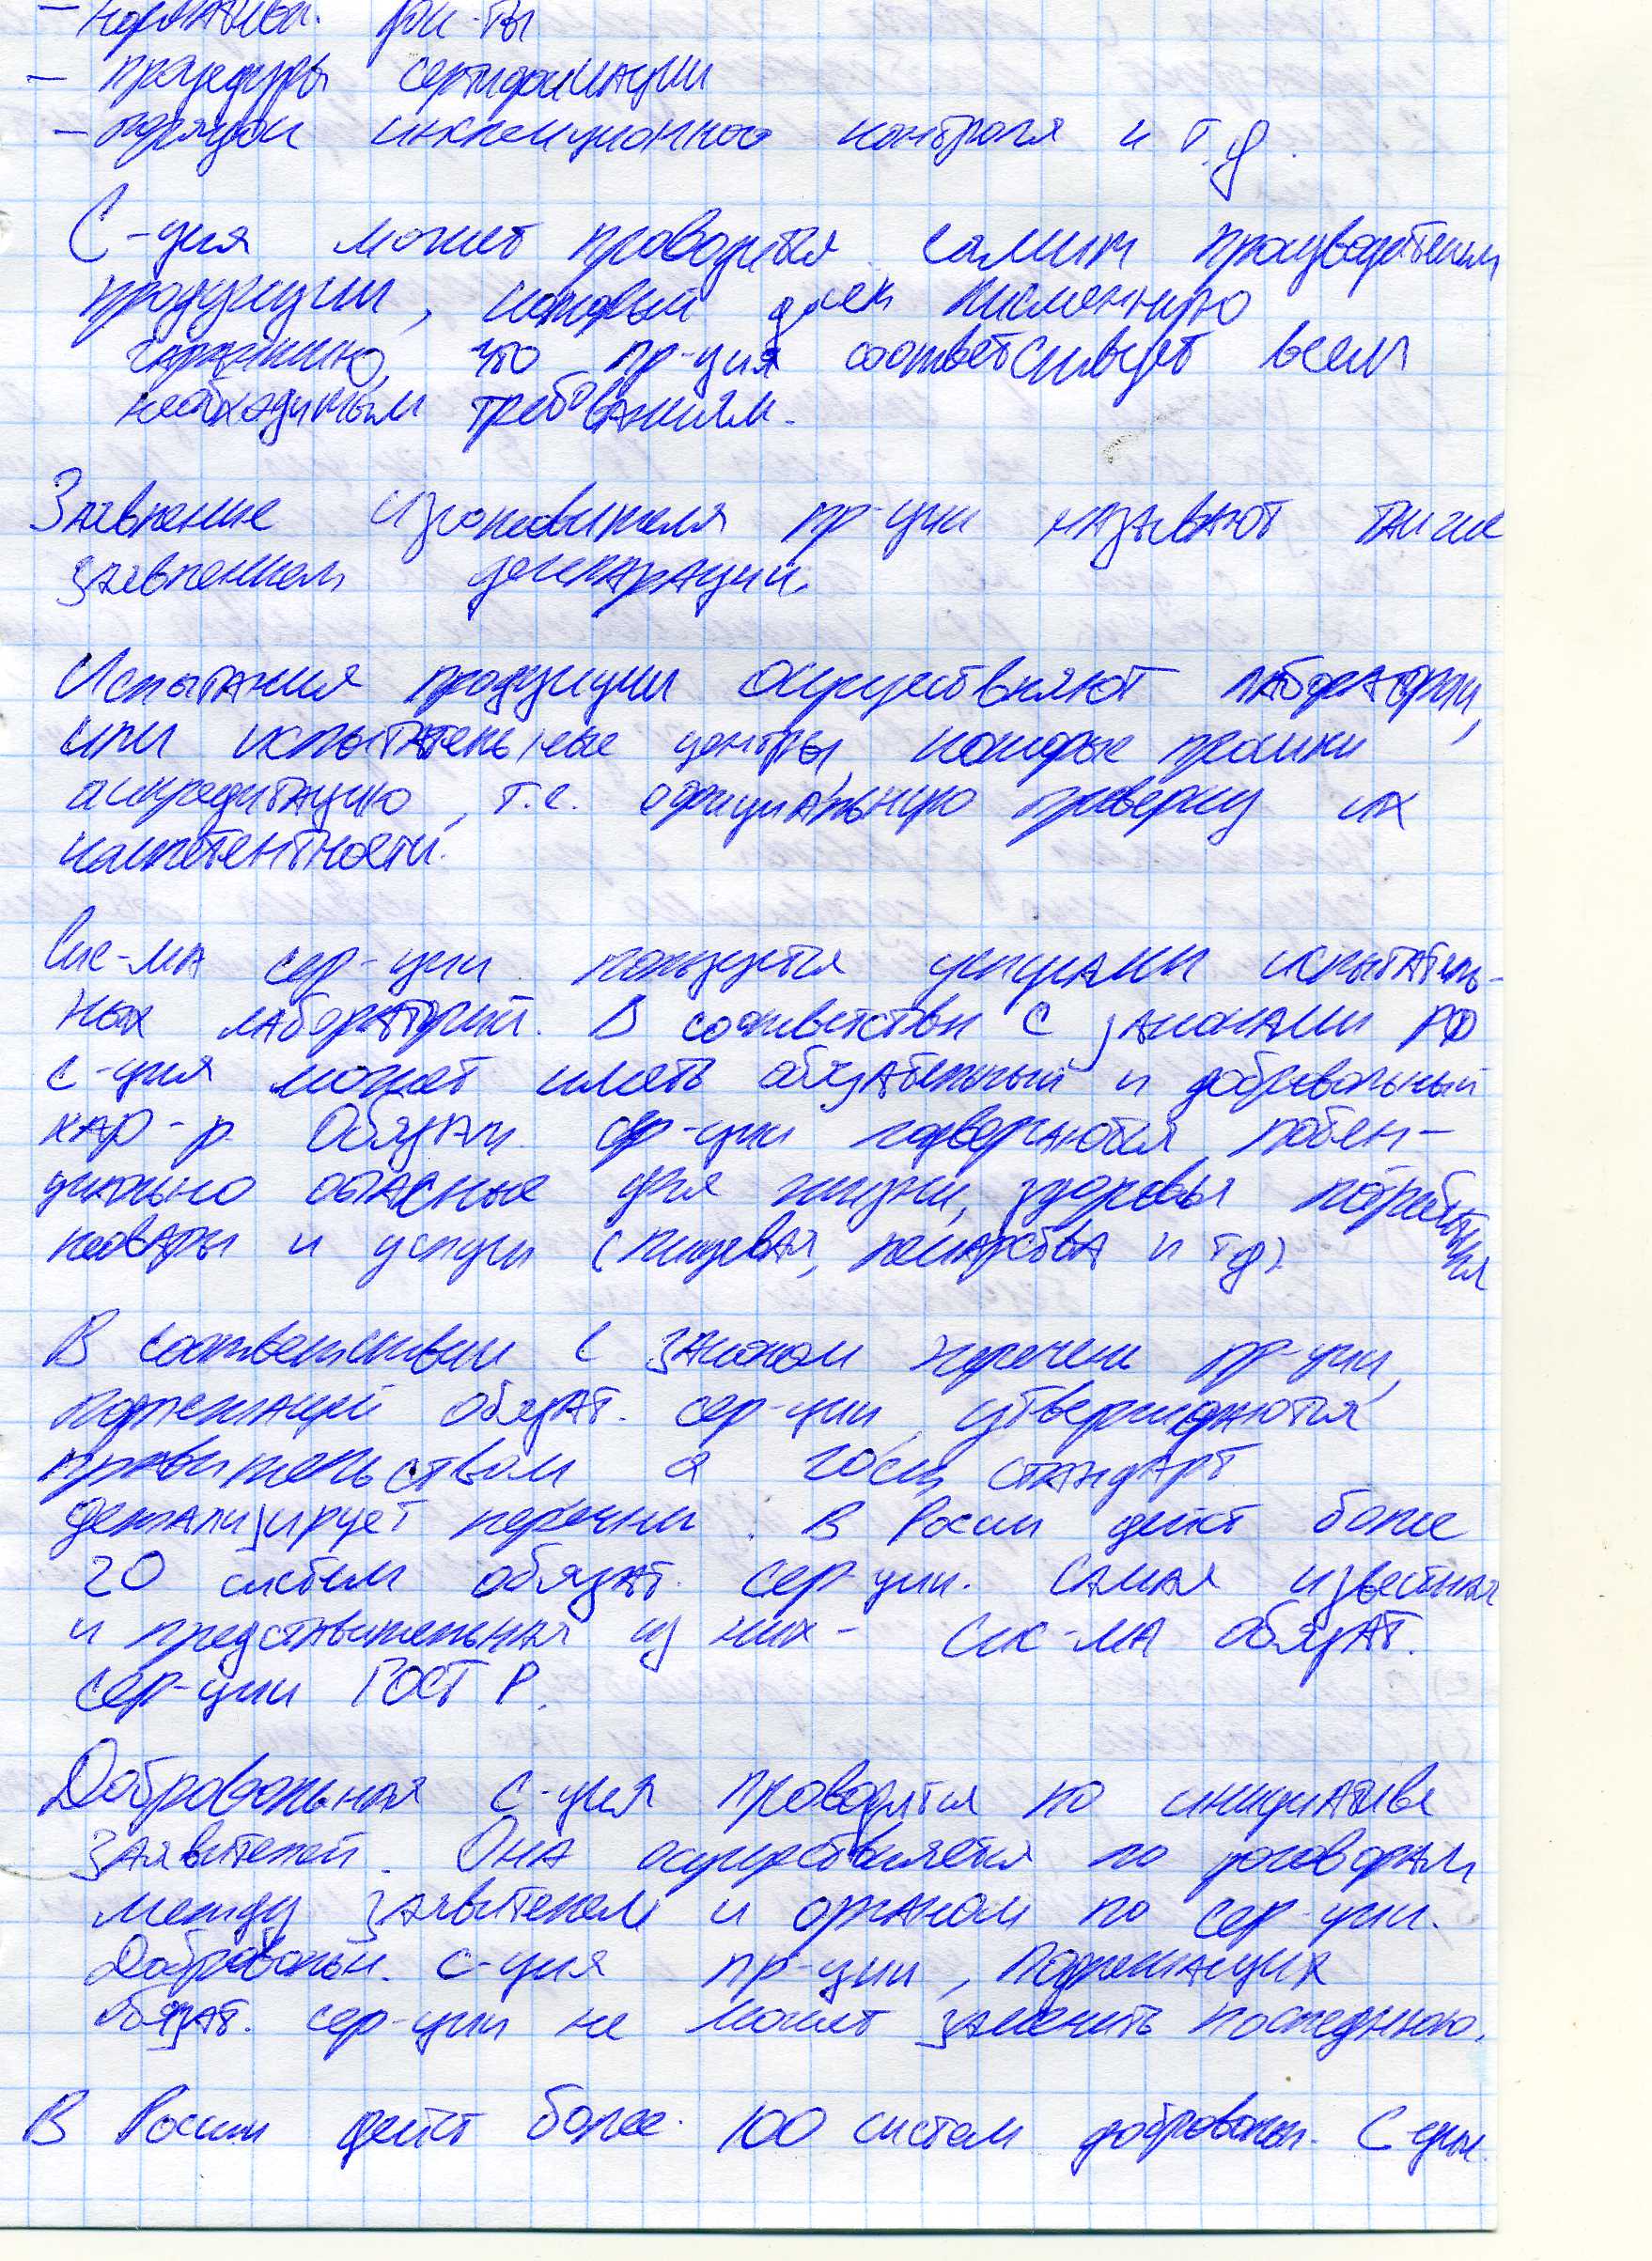 - норматив. док-ты
- процедуры сертификации
- порядок инспекционного контроля и т.д.
С-ция может проводится самим производителем
продукции, который дает писменную
гарантию, что пр-ция соответсивует всем
необходимым требованиям.
Заявление изготовителя пр-ции называют также
заявлением декларации.
Испытания продукции осуществляют лаборатории,
или испытательные центры, которые прошли
аккредитацию, т.е. официальную проверку их
компетентности.
Сис-ма сер-ции пользуется услугами испытатель-
ных лабораторий. В соответстви с законами РФ
с-ция может иметь обязательный и добровольный
хар-р. Обязат. сер-ции подвергаются потен-
циально опасные для жизни, здоровья потребителя
товары и услуги (пищевая, лекарства и тд)
В соответствии с законом перечени пр-ции,
подлежащей обязат. сер-ции утверждаются
правительством а госстандарт
детализирует перечни. В Росии дейст более
20 систем обязат. сер-ции. Самая известная
и представительная из них - Сис-ма обязат.
сер-ции ГОСТ Р.
Добровольная с-ция проводятся по инициативе
заявителей. Она осуществляется по договорам
между заявителем и органом по сер-ции.
Добровольн. с-ция пр-ции, подлежащих
обязат. сер-ции не может заменить последнюю.
В Росии дейст более 100 систем добровольн. С-ции.